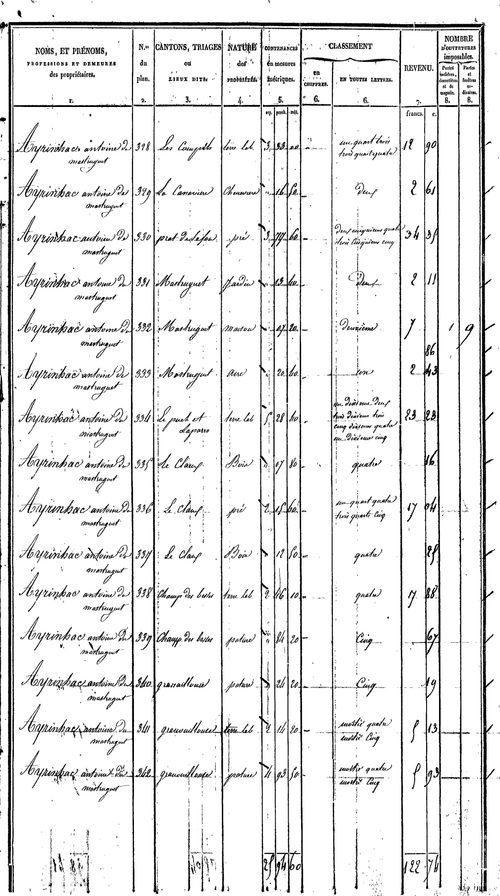 NOMS, ET PRÉNOMS, PROFESSIONS ET DEMEURES des propriétaires. N.os du plan. CANTONS, TRIAGES ou LIEUX DITS. NATURE des PROPRIÉTÉS. CONTENANCES en mesures métriques. CLASSEMENT EN CHIFFRES. EN TOUTES LETTRES. REVENU. NOMBRE D'OUVERTURES imposables.
1. 2. 3. 4. 5. 6. 6. 7. 8. 8.
francs. c.
Ayrinhac antoine de mastruguet 328 Les Comptals terre lab 3 33 00 un quart trois trois quart quatre 12 90
Ayrinhac antoine de mastruguet 329 La Canavière Chenevière 16 50 deux 2 61
Ayrinhac antoine de mastruguet 330 pré 3 77 60 deux cinquième quatre trois cinquième cinq 34 35
Ayrinhac antoine de mastruguet 331 Mastruguet Jardin 13 60 deux 2 11
Ayrinhac antoine de mastruguet 332 Mastruguet maison 07 20 deuxième 7 1 9
86
Ayrinhac antoine de mastruguet 333 Mastruguet aire 20 60 une 2 43
Ayrinhac antoine de mastruguet 334 Le puech et terre lab 5 28 60 un dixième deux trois dixième trois cinq dixième quatre un dixième cinq 23 23
Ayrinhac antoine de mastruguet 335 Le Claux Bois 07 80 quatre 16
Ayrinhac antoine de mastruguet 336 Le Claux pré 2 15 60 un quart quatre trois quarts cinq 17 04
Ayrinhac antoine de mastruguet 337 Le Claux Bois 12 50 quatre 25
Ayrinhac antoine de mastruguet 338 Champ des terre lab 2 46 10 quatre 17 88
Ayrinhac antoine de mastruguet 339 Champ des pature 84 20 Cinq 67
Ayrinhac antoine de mastruguet 340 granouillouse pature 24 20 Cinq 19
Ayrinhac antoine de mastruguet 341 granouillouse terre lab 4 14 20 moitié quatre moitié Cinq 5 13
Ayrinhac antoine de mastruguet 342 granouillouse pature 4 93 50 moitié quatre moitié Cinq 5 93
25 94 60 122 76